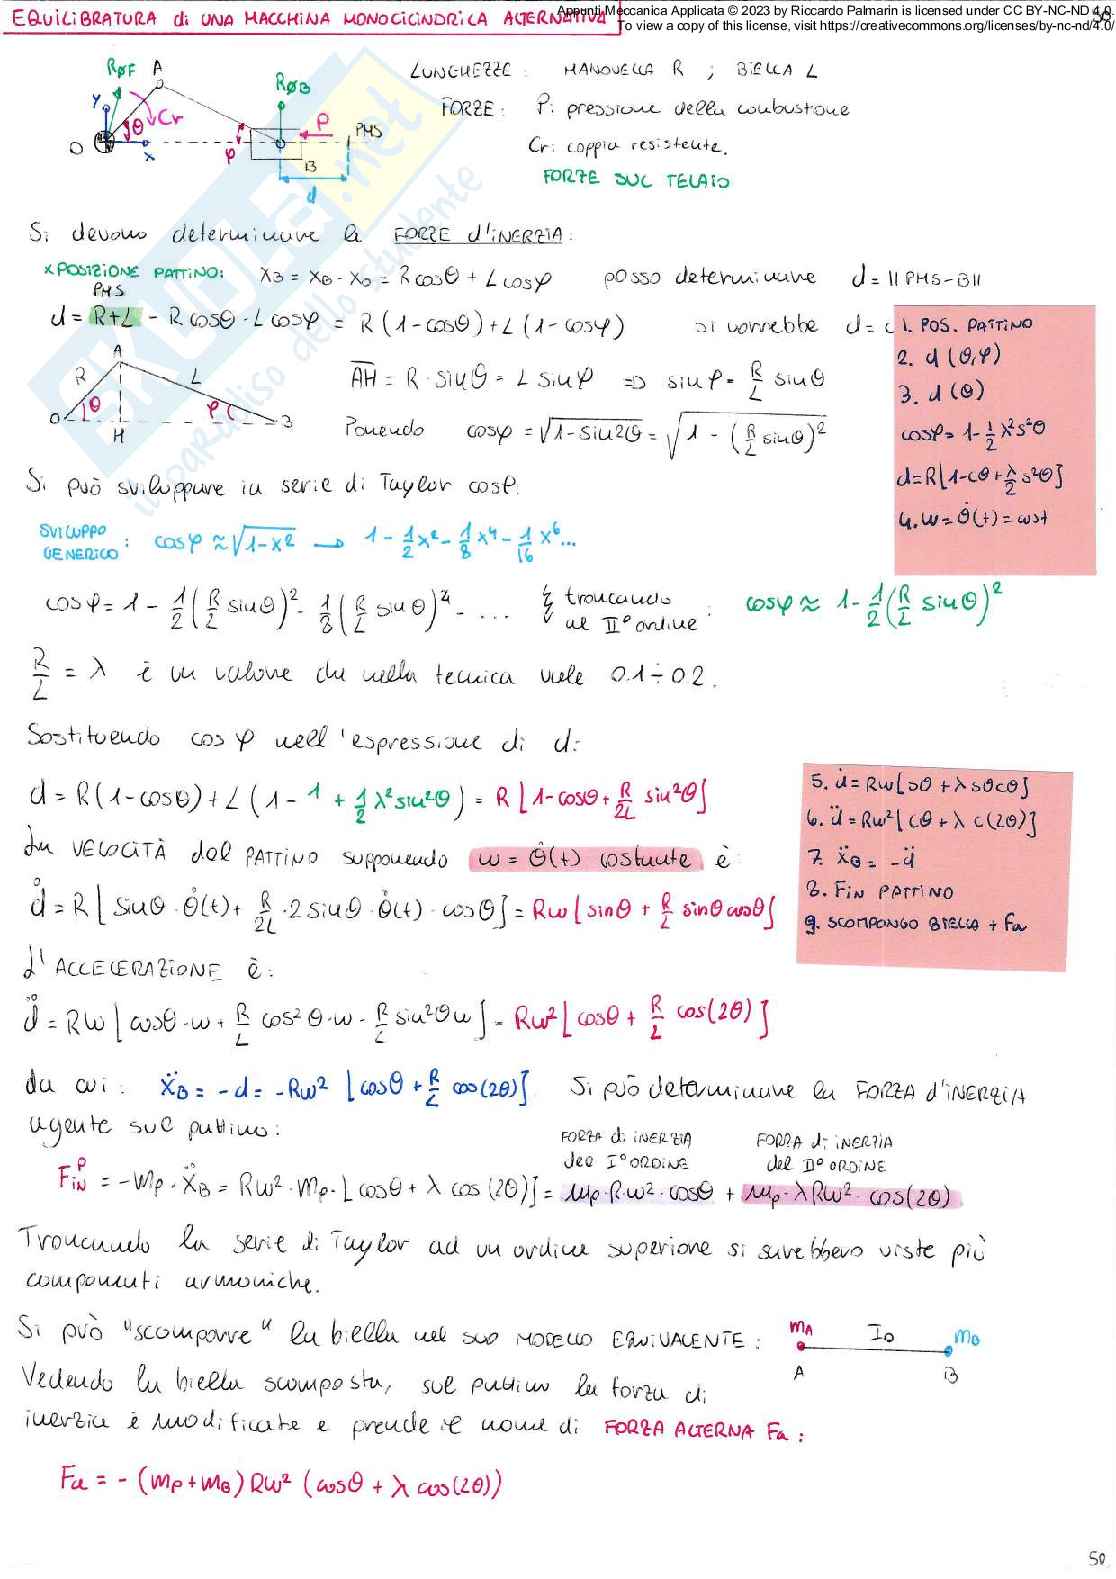 EQUILIBRATURA di UNA MACCHINA MONOCILINDRICA ALTERNATIVA
Appunti Meccanica Applicata © 2023 by Riccardo Palmarin is licensed under CC BY-NC-ND 4.0.
To view a copy of this license, visit https://creativecommons.org/licenses/by-nc-nd/4.0/
RØF A Y θ Cr O x φ RØB P PMS B d
LUNGHEZZE: MANOVELLA R ; BIELLA L
FORZE: P: pressione della combustione
Cr: coppia resistente.
FORZE SUL TELAIO
SKUOLA.net
il paradiso dello studente
Si devono determinare le FORZE d'INERZIA:
x POSIZIONE PATTINO: XB = XB - XO = R cosθ + L cosφ posso determinare d = || PMS-B ||
PMS
d = R+L - R cosθ - L cosφ = R (1-cosθ) + L (1-cosφ) si vorrebbe d =
1. POS. PATTINO
2. d (θ,φ)
3. d (θ)
cosφ = 1 - 1/2 λ²s²θ
d = R[1-cθ + λ/2 s²θ]
4. ω = θ̇(t) = cost
A R L θ φ O H B
AH = R · sinθ = L sinφ => sinφ = R/L sinθ
Ponendo cosφ = √1-sin2θ = √1 - (R/L sinθ)²
Si può sviluppare in serie di Taylor cosφ.
SVILUPPO GENERICO: cosφ ≈ √1-x² → 1 - 1/2 x² - 1/8 x⁴ - 1/16 x⁶...
cosφ = 1 - 1/2 (R/L sinθ)² - 1/8 (R/L sinθ)⁴ - ... troncando al II° ordine : cosφ ≈ 1 - 1/2 (R/L sinθ)²
R/L = λ è un valore che nella tecnica vale 0.1 ÷ 0.2.
Sostituendo cosφ nell'espressione di d:
d = R(1-cosθ) + L (1 - 1 + 1/2 λ² sin²θ) = R [1-cosθ + R/2L sin²θ]
La VELOCITÀ del PATTINO supponendo ω = θ̇(t) costante è
ḋ = R [sinθ · θ̇(t) + R/2L · 2 sinθ · θ̇(t) · cosθ] = Rω [sinθ + R/L sinθ cosθ]
5. ḋ = Rω[sθ + λ sθcθ]
6. d̈ = Rω²[cθ + λ c(2θ)]
7. ẍB = -d̈
8. Fin PATTINO
9. SCOMPONGO BIELLA + Fa
L'ACCELERAZIONE È:
d̈ = Rω [cosθ·ω + R/L cos²θ·ω - R/L sin²θω] = Rω² [cosθ + R/L cos(2θ)]
da cui: ẍB = -d = -Rω² [cosθ + R/L cos(2θ)] Si può determinare la FORZA d'INERZIA
agente sul pattino:
FORZA di INERZIA del I° ORDINE FORZA di INERZIA del II° ORDINE
FIN^P = -mp·ẍB = Rω²·mp·[cosθ + λ cos(2θ)] = mp·R·ω²·cosθ + mp·λRω²·cos(2θ)
Troncando la serie di Taylor ad un ordine superiore si sarebbero viste più
componenti armoniche.
Si può "scomporre" la biella nel suo MODELLO EQUIVALENTE: mA I0 mB
A B
Vedendo la biella scomposta, sul pattino la forza di
inerzia è modificata e prende il nome di FORZA ALTERNA Fa:
Fa = - (mp + mB) Rω² (cosθ + λ cos(2θ))
50